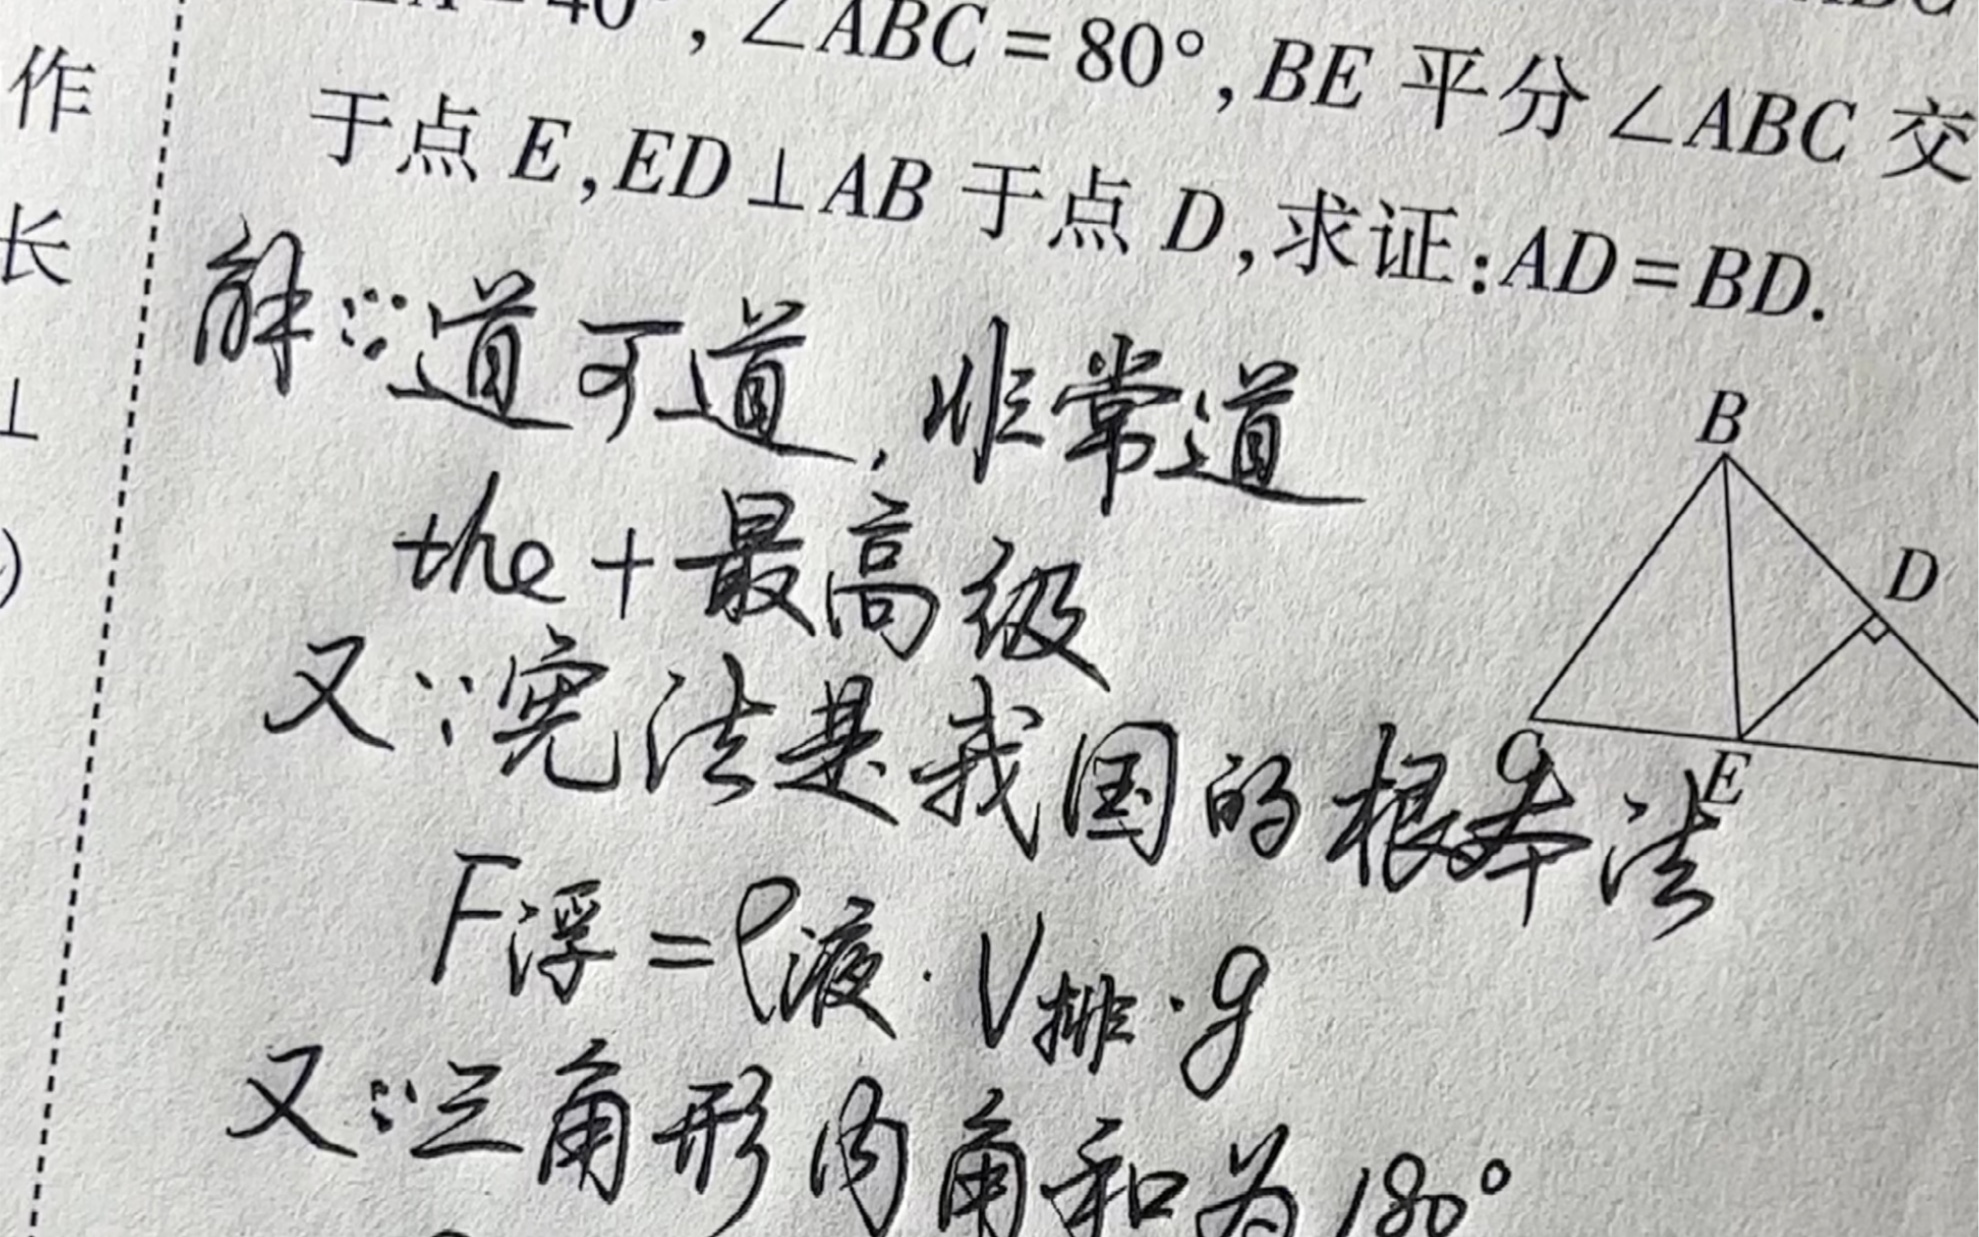 作
长
⊥
)
=40°,∠ABC=80°,BE 平分∠ABC 交
于点 E,ED⊥AB 于点 D,求证:AD=BD.
解:∵道可道,非常道
the+最高级
又∵宪法是我国的根本法
F浮=ρ液·V排·g
又∵三角形内角和为180°
B
D
C
E